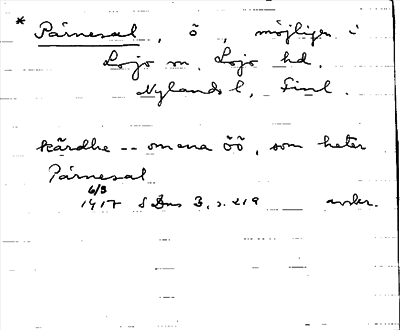 * Pärnesal, ö, möjligen i
Lojo sn, Lojo hd.
Nylands l, Finl.
kärdhe -- om ena öö, som heter
Pärnesal
6/3
1417 SDns 3, s. 219 avskr.